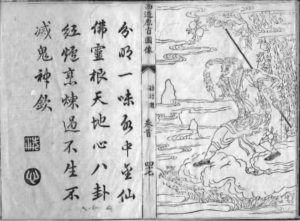 西遊原旨圖像
卷首
分明一味水中金仙
佛靈根天地心八卦
經爐烹煉過不生不
滅鬼神欽